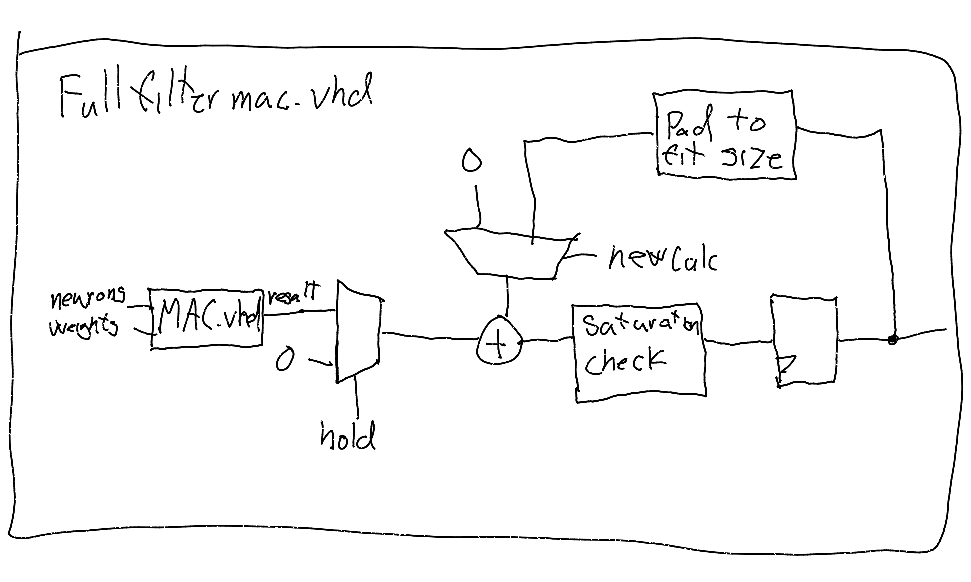 Full filter mac.vhd
Pad to
fit size
0
newCalc
neurons
weights
MAC.vhd
result
0
hold
+
Saturation
check